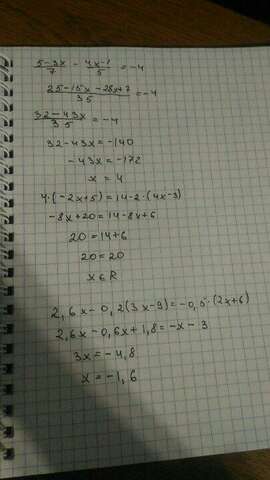 (5-3x)/7 - (4x-1)/5 = -4
(25-15x-28x+7)/35 = -4
(32-43x)/35 = -4
32-43x=-140
-43x=-172
x=4
4·(-2x+5)=14-2·(4x-3)
-8x+20=14-8x+6
20=14+6
20=20
x∈R
2,6x-0,2(3x-9)=-0,5·(2x+6)
2,6x-0,6x+1,8=-x-3
3x=-4,8
x=-1,6